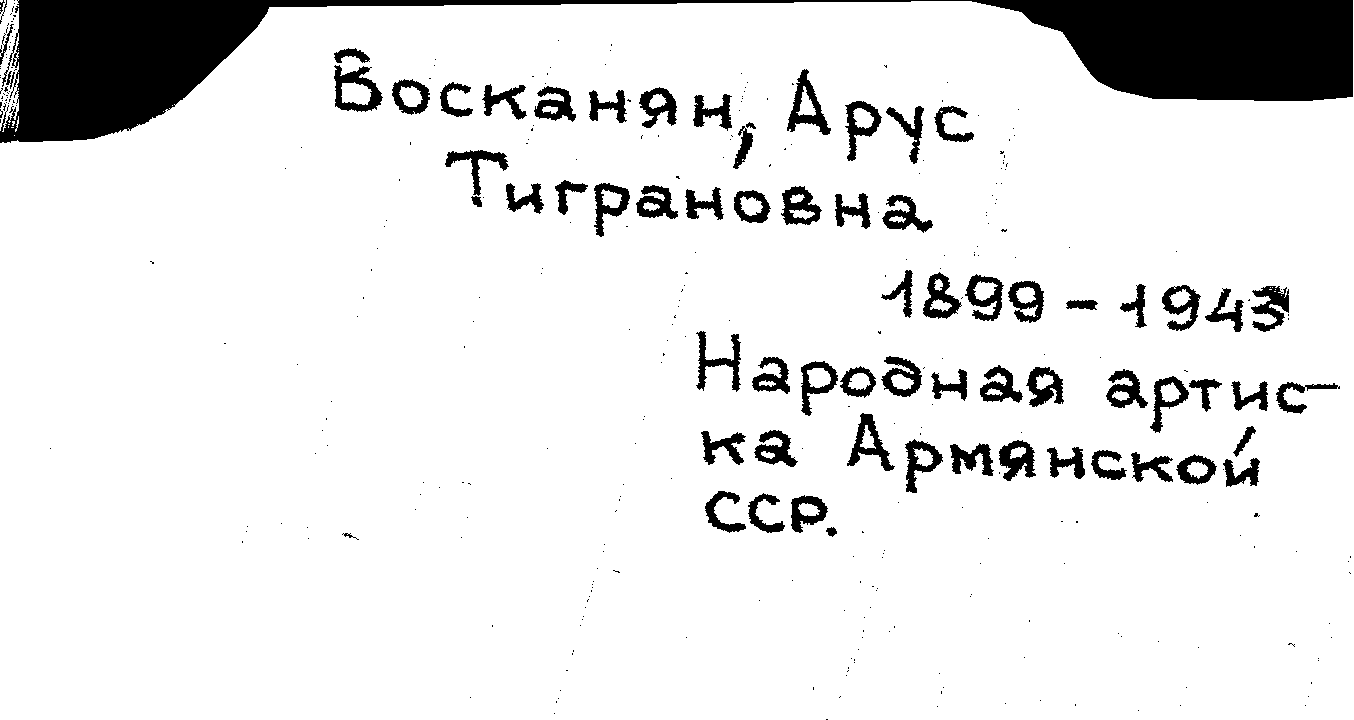 Восканян, Арус
Тиграновна
1899-1943
Народная артис-
ка Армянской
ССР.